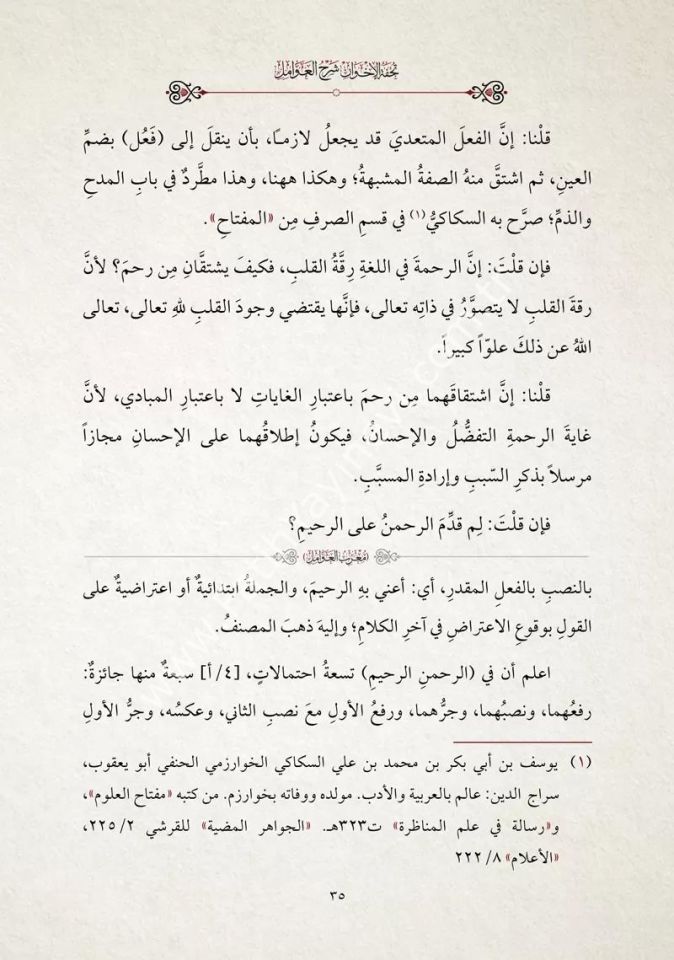 تحفة الإخوان شرح العوامل
قلْنا: إنَّ الفعلَ المتعديَ قد يجعلُ لازمـًا، بأن ينقلَ إلى (فَعُل) بضمِّ
العينِ، ثم اشتقَّ منهُ الصفةُ المشبهةُ؛ وهكذا ههنا، وهذا مطَّردٌ في بابِ المدحِ
والذمِّ؛ صرَّح به السكاكيُّ(١) في قسمِ الصرفِ مِن «المفتاحِ».
فإن قلْتَ: إنَّ الرحمةَ في اللغةِ رِقَّةُ القلبِ، فكيفَ يشتقَّانِ مِن رحمَ؟ لأنَّ
رقةَ القلبِ لا يتصوَّرُ في ذاتِه تعالى، فإنَّها يقتضي وجودَ القلبِ للهِ تعالى، تعالى
اللهُ عن ذلكَ علوّاً كبيراً.
قلْنا: إنَّ اشتقاقَهما مِن رحمَ باعتبارِ الغاياتِ لا باعتبارِ المبادي، لأنَّ
غايةَ الرحمةِ التفضُّلُ والإحسانُ، فيكونُ إطلاقُهما على الإحسانِ مجازاً
مرسلاً بذكرِ السّببِ وإرادةِ المسبَّبِ.
فإن قلْتَ: لِم قدِّمَ الرحمنُ على الرحيمِ؟
(معرب العوامل)
بالنصبِ بالفعلِ المقدرِ، أي: أعني بهِ الرحيمَ، والجملةُ ابتدائيةٌ أو اعتراضيةٌ على
القولِ بوقوعِ الاعتراضِ في آخرِ الكلامِ؛ وإليهَ ذهبَ المصنفُ.
اعلم أن في (الرحمنِ الرحيمِ) تسعةُ احتمالاتٍ، [٤/أ] سبعةٌ منها جائزةٌ:
رفعُهما، ونصبُهما، وجرُّهما، ورفعُ الأولِ معَ نصبِ الثاني، وعكسُه، وجرُّ الأولِ
(١) يوسف بن أبي بكر بن محمد بن علي السكاكي الخوارزمي الحنفي أبو يعقوب،
سراج الدين: عالم بالعربية والأدب. مولده ووفاته بخوارزم. من كتبه «مفتاح العلوم»،
و«رسالة في علم المناظرة» ت٣٢٣هـ. «الجواهر المضية» للقرشي ٢/ ٢٢٥،
«الأعلام» ٨/ ٢٢٢
٣٥